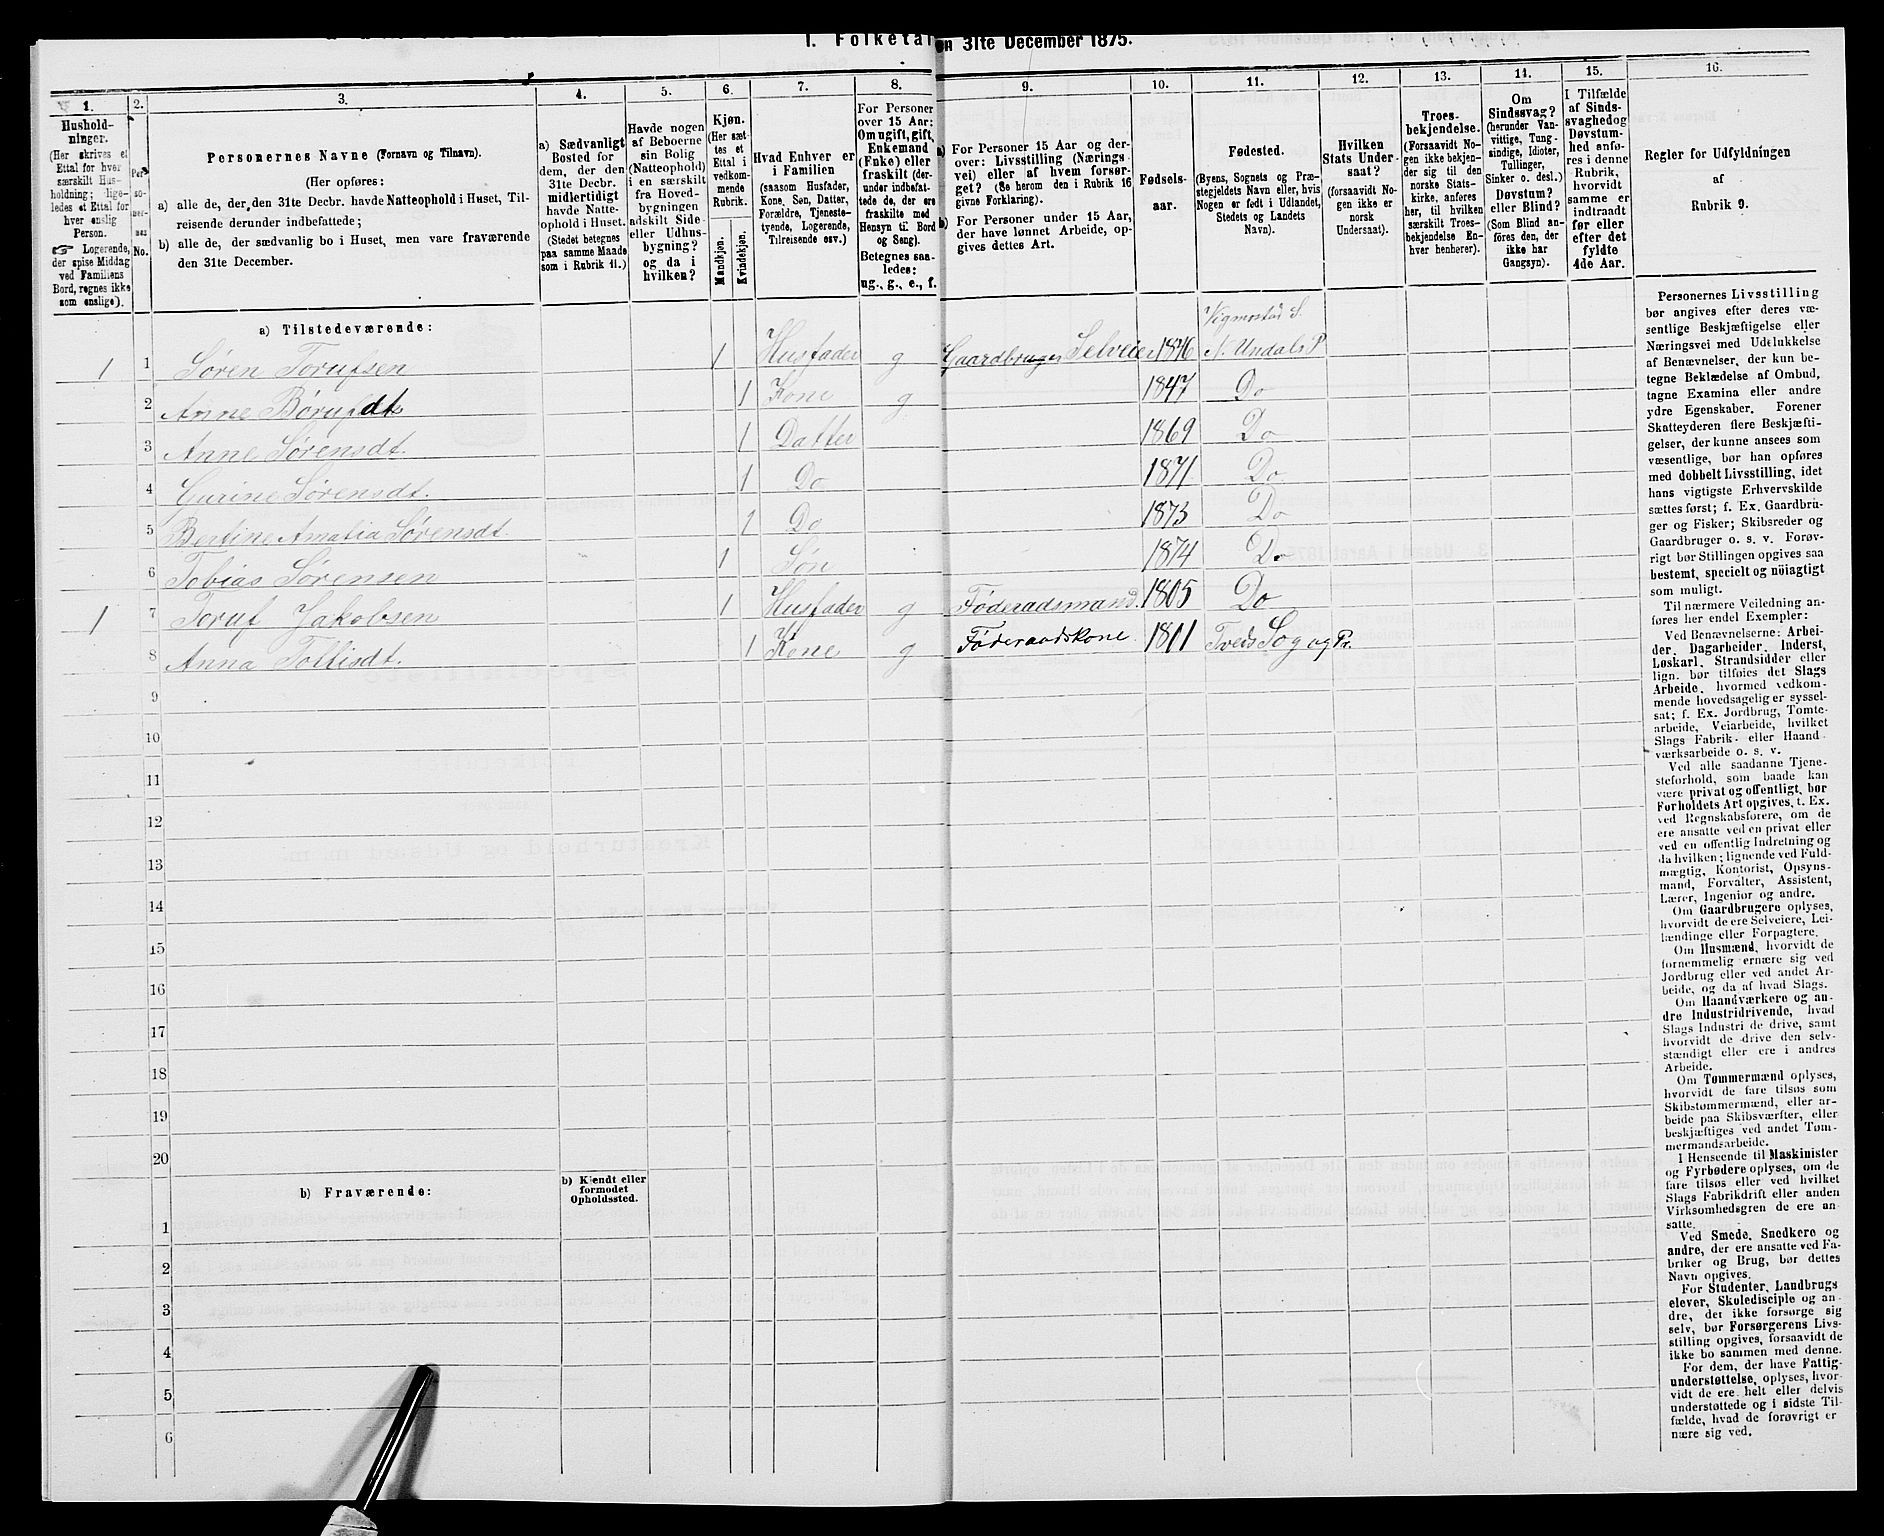 I. Folketal
en 31te December 1875.
1.
Hushold-
ninger.
(Her skrives et
Ettal for hver
særskilt Hus-
holdning; lige-
ledes et Ettal for
hver enslig
Person.
☞ Logerende,
der spise Middag
ved Familiens
Bord, regnes ikke
som enslige).
2.
Per-
so-
ner-
nes
No.
3.
Personernes Navne (Fornavn og Tilnavn).
(Her opføres:
a) alle de, der den 31te Decbr. havde Natteophold i Huset, Til-
reisende derunder indbefattede;
b) alle de, der sædvanlig bo i Huset, men vare fraværende
den 31te December.
4.
a) Sædvanligt
Bosted for
dem, der den
31te Decbr.
midlertidigt
havde Natte-
ophold i Huset.
(Stedet betegnes
paa samme Maade
som i Rubrik 11.)
5.
Havde nogen
af Beboerne
sin Bolig
(Natteophold)
i en særskilt
fra Hoved-
bygningen
adskilt Side-
eller Udhus-
bygning?
og da i
hvilken?
6.
Kjøn.
(Her sæt-
tes et
Ettal i
vedkom-
mende
Rubrik.
Mandkjøn.
Kvindekjøn.
7.
Hvad Enhver er
i Familien
(saasom Husfader,
Kone, Søn, Datter,
Forældre, Tjeneste-
tyende, Logerende,
Tilreisende osv.)
8.
For Personer
over 15 Aar:
Om ugift, gift,
Enkemand
(Enke) eller
fraskilt (der-
under indbefat-
tede de, der ere
fraskilte med
Hensyn til Bord
og Seng).
Betegnes saa-
ledes:
ug., g., e., f.
9.
a) For Personer 15 Aar og der-
over: Livsstilling (Nærings-
vei) eller af hvem forsør-
get? (Se herom den i Rubrik 16
givne Forklaring).
b) For Personer under 15 Aar,
der have lønnet Arbeide, op-
gives dettes Art.
10.
Fødsels-
aar.
11.
Fødested.
(Byens, Sognets og Præ-
stegjeldets Navn eller, hvis
Nogen er født i Udlandet,
Stedets og Landets
Navn).
12.
Hvilken
Stats Under-
saat?
(forsaavidt No-
gen ikke er
norsk
Undersaat).
13.
Troes-
bekjendelse.
(Forsaavidt No-
gen ikke bekjen-
der sig til den
norske Stats-
kirke, anføres
her, til hvilken
særskilt Troes-
bekjendelse En-
hver henhører).
14.
Om
Sindssvag?
(herunder Van-
vittige, Tung-
sindige, Idioter,
Tullinger,
Sinker o. desl.)
Døvstum?
eller Blind?
(Som Blind an-
føres den, der
ikke har
Gangsyn).
15.
I Tilfælde
af Sinds-
svaghed og
Døvstum-
hed anfø-
res i denne
Rubrik,
hvorvidt
samme er
indtraadt
før eller
efter det
fyldte
4de Aar.
16.
Regler for Udfyldningen
af
Rubrik 9.
a) Tilstedeværende:
Vigmostad S.
1 1 Søren Torufsen 1 Husfader g Gaardbruger Selveier 1846 N. Undals P
2 Anne Børufsdt 1 Kone g 1847 Do
3 Anne Sørensdt. 1 Datter 1869 Do
4 Gurine Sørensdt. 1 Do 1871 Do
5 Bertine Amalia Sørensdt. 1 Do 1873 Do
6 Tobias Sørensen 1 Søn 1874 Do
1 7 Toruf Jakobsen 1 Husfader g Føderadsmand. 1805 Do
8 Anna Tollisdt. 1 Kone g Føderaadskone 1811 Tveds Sog og Pr.
9
10
11
12
13
14
15
16
17
18
19
20
b) Fraværende:
b) Kjendt eller
formodet
Opholdssted.
1
2
3
4
5
6
Personernes Livsstilling
bør angives efter deres væ-
sentlige Beskjæftigelse eller
Næringsvei med Udelukkelse
af Benævnelser, der kun be-
tegne Beklædelse af Ombud,
tagne Examina eller andre
ydre Egenskaber. Forener
Skatteyderen flere Beskjæfti-
gelser, der kunne ansees som
væsentlige, bør han opføres
med dobbelt Livsstilling, idet
hans vigtigste Erhvervskilde
sættes først; f. Ex. Gaardbru-
ger og Fisker; Skibsreder og
Gaardbruger o. s. v. Forøv-
rigt bør Stillingen opgives saa
bestemt, specielt og nöiagtigt
som muligt.
Til nærmere Veiledning an-
føres her endel Exempler:
Ved Benævnelserne: Arbei-
der, Dagarbeider, Inderst,
Løskarl, Strandsidder eller
lign. bør tilføies det Slags
Arbeide, hvormed vedkom-
mende hovedsagelig er syssel-
sat; f. Ex. Jordbrug, Tomte-
arbeide, Veiarbeide, hvilket
Slags Fabrik- eller Haand-
værksarbeide o. s. v.
Ved alle saadanne Tjene-
steforhold, som baade kan
være privat og offentligt, bør
Forholdets Art opgives, t. Ex.
ved Regnskabsførere, om de
ere ansatte ved en privat eller
ved en offentlig Indretning og
da hvilken; lignende ved Fuld-
mægtig, Kontorist, Opsyns-
mand, Forvalter, Assistent,
Lærer, Ingeniør og andre.
Om Gaardbrugere oplyses,
hvorvidt de ere Selveiere, Lei-
lændinge eller Forpagtere.
Om Husmænd, hvorvidt de
fornemmelig ernære sig ved
Jordbrug eller ved andet Ar-
beide, og da af hvad Slags.
Om Haandværkere og an-
dre Industridrivende, hvad
Slags Industri de drive, samt
hvorvidt de drive den selv-
stændigt eller ere i andres
Arbeide.
Om Tømmermænd oplyses,
hvorvidt de fare tilsøs som
Skibstømmermænd, eller ar-
beide paa Skibsværfter, eller
beskjæftiges ved andet Tøm-
mermandsarbeide.
I Henseende til Maskinister
og Fyrbødere oplyses, om de
fare tilsøs eller ved hvilket
Slags Fabrikdrift eller anden
Virksomhedsgren de ere an-
satte.
Ved Smede, Snedkere og
andre, der ere ansatte ved Fa-
briker og Brug, bør dettes
Navn opgives.
For Studenter, Landbrugs-
elever, Skoledisciple og an-
dre, der ikke forsørge sig
selv, bør Forsørgerens Livs-
stilling opgives, forsaavidt de
ikke bo sammen med denne.
For dem, der have Fattig-
understøttelse, oplyses, hvor-
vidt de ere helt eller delvis
understøttede og i sidste Til-
fælde, hvad de forøvrigt er-
nære sig ved.